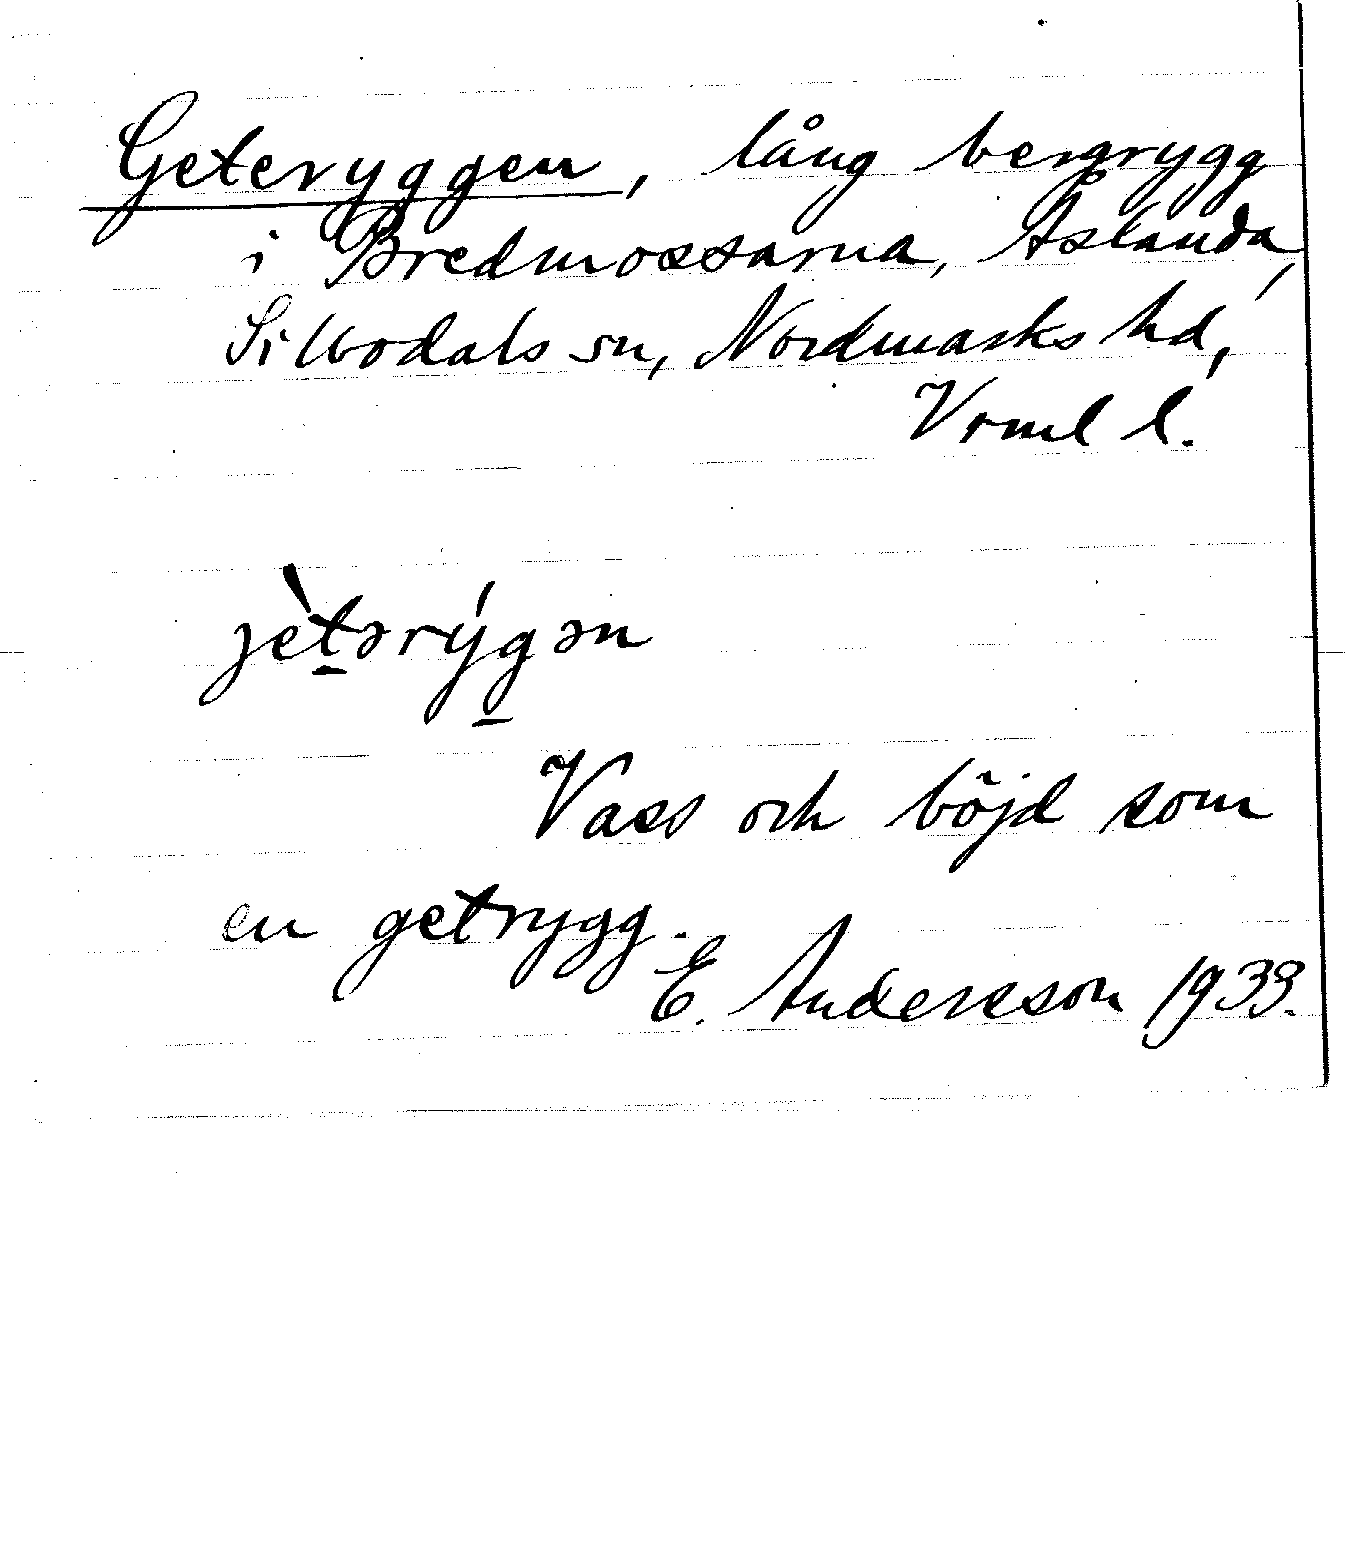 Geteryggen, lång bergrygg
i Bredmossarna, Åslanda,
Silbodals sn, Nordmarks hd,
Vrml l.
jètərýgən
Vass och böjd som
en getrygg.
E. Andersson 1933.